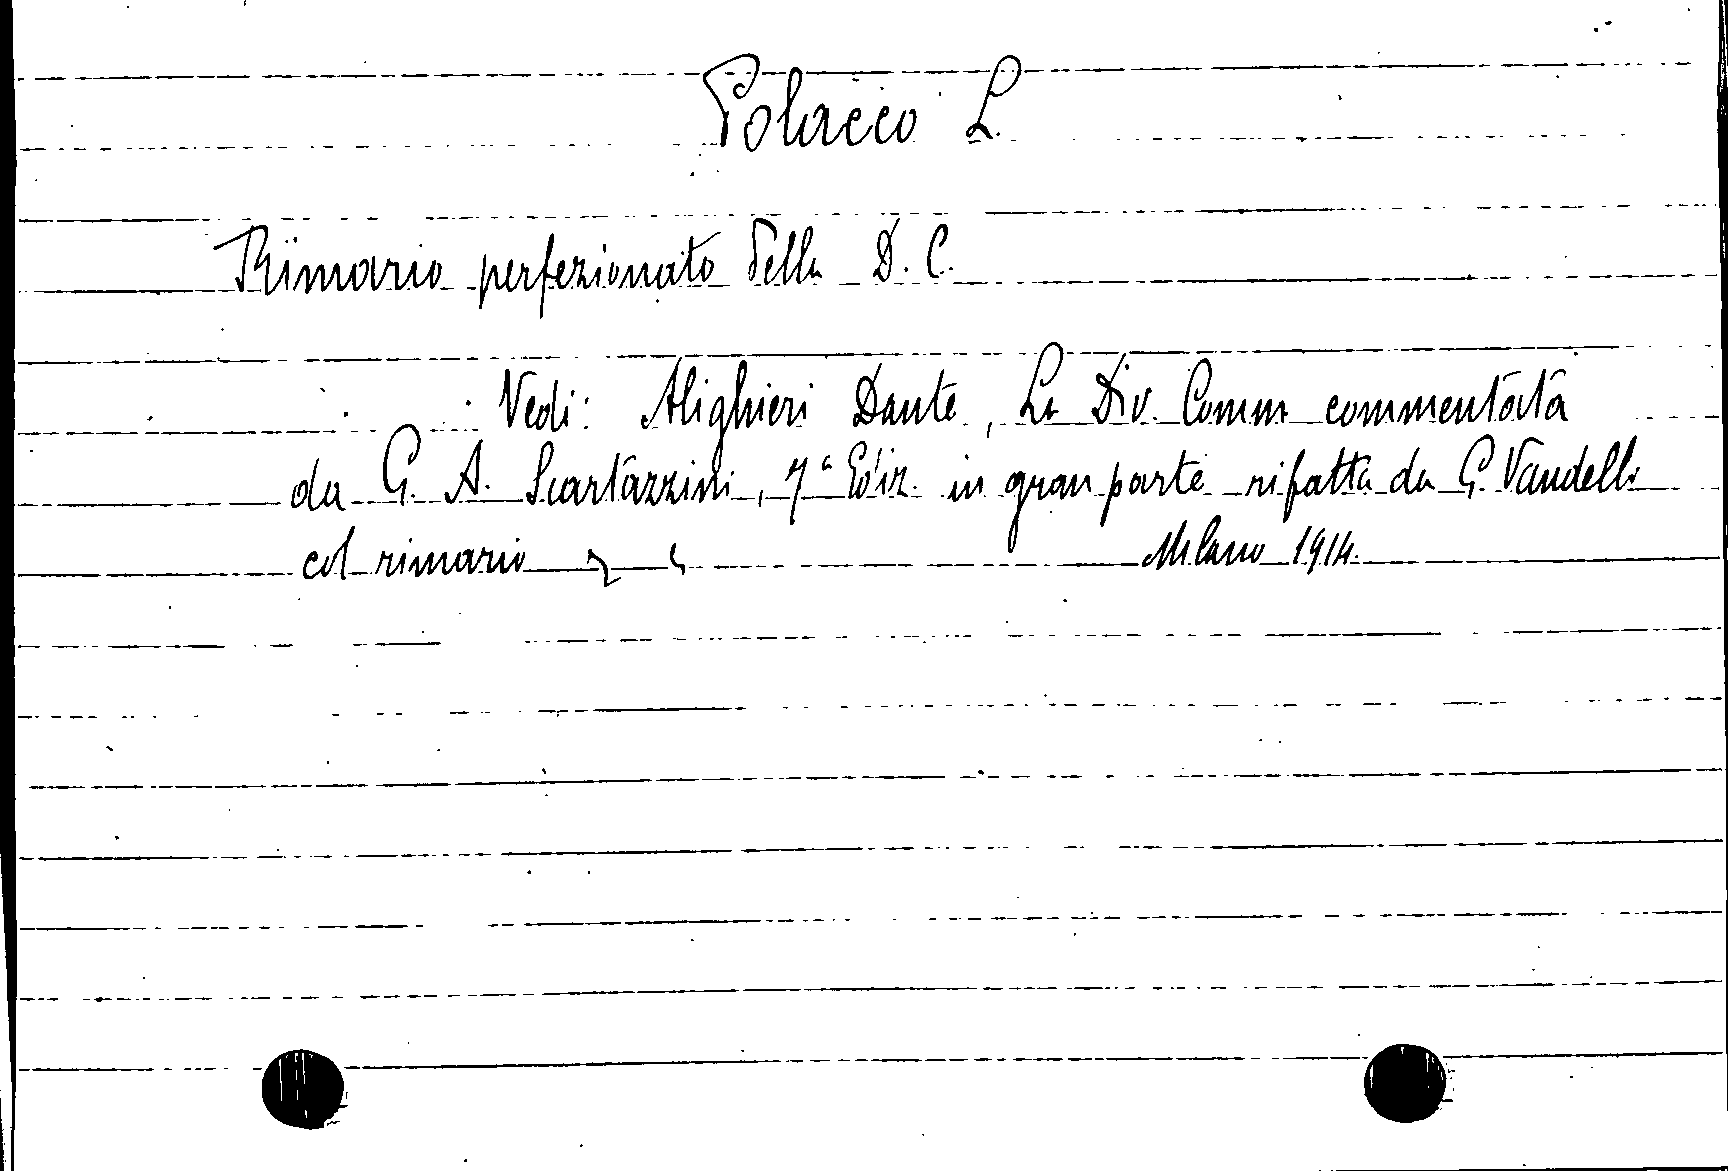 Polacco L.
Rimario perfezionato della D. C.
Vedi: Alighieri Dante, La Div. Comm. commentata
da G. A. Scartazzini, 7ª Ediz. in gran parte rifatta da G. Vandelli
col rimario Milano 1914.